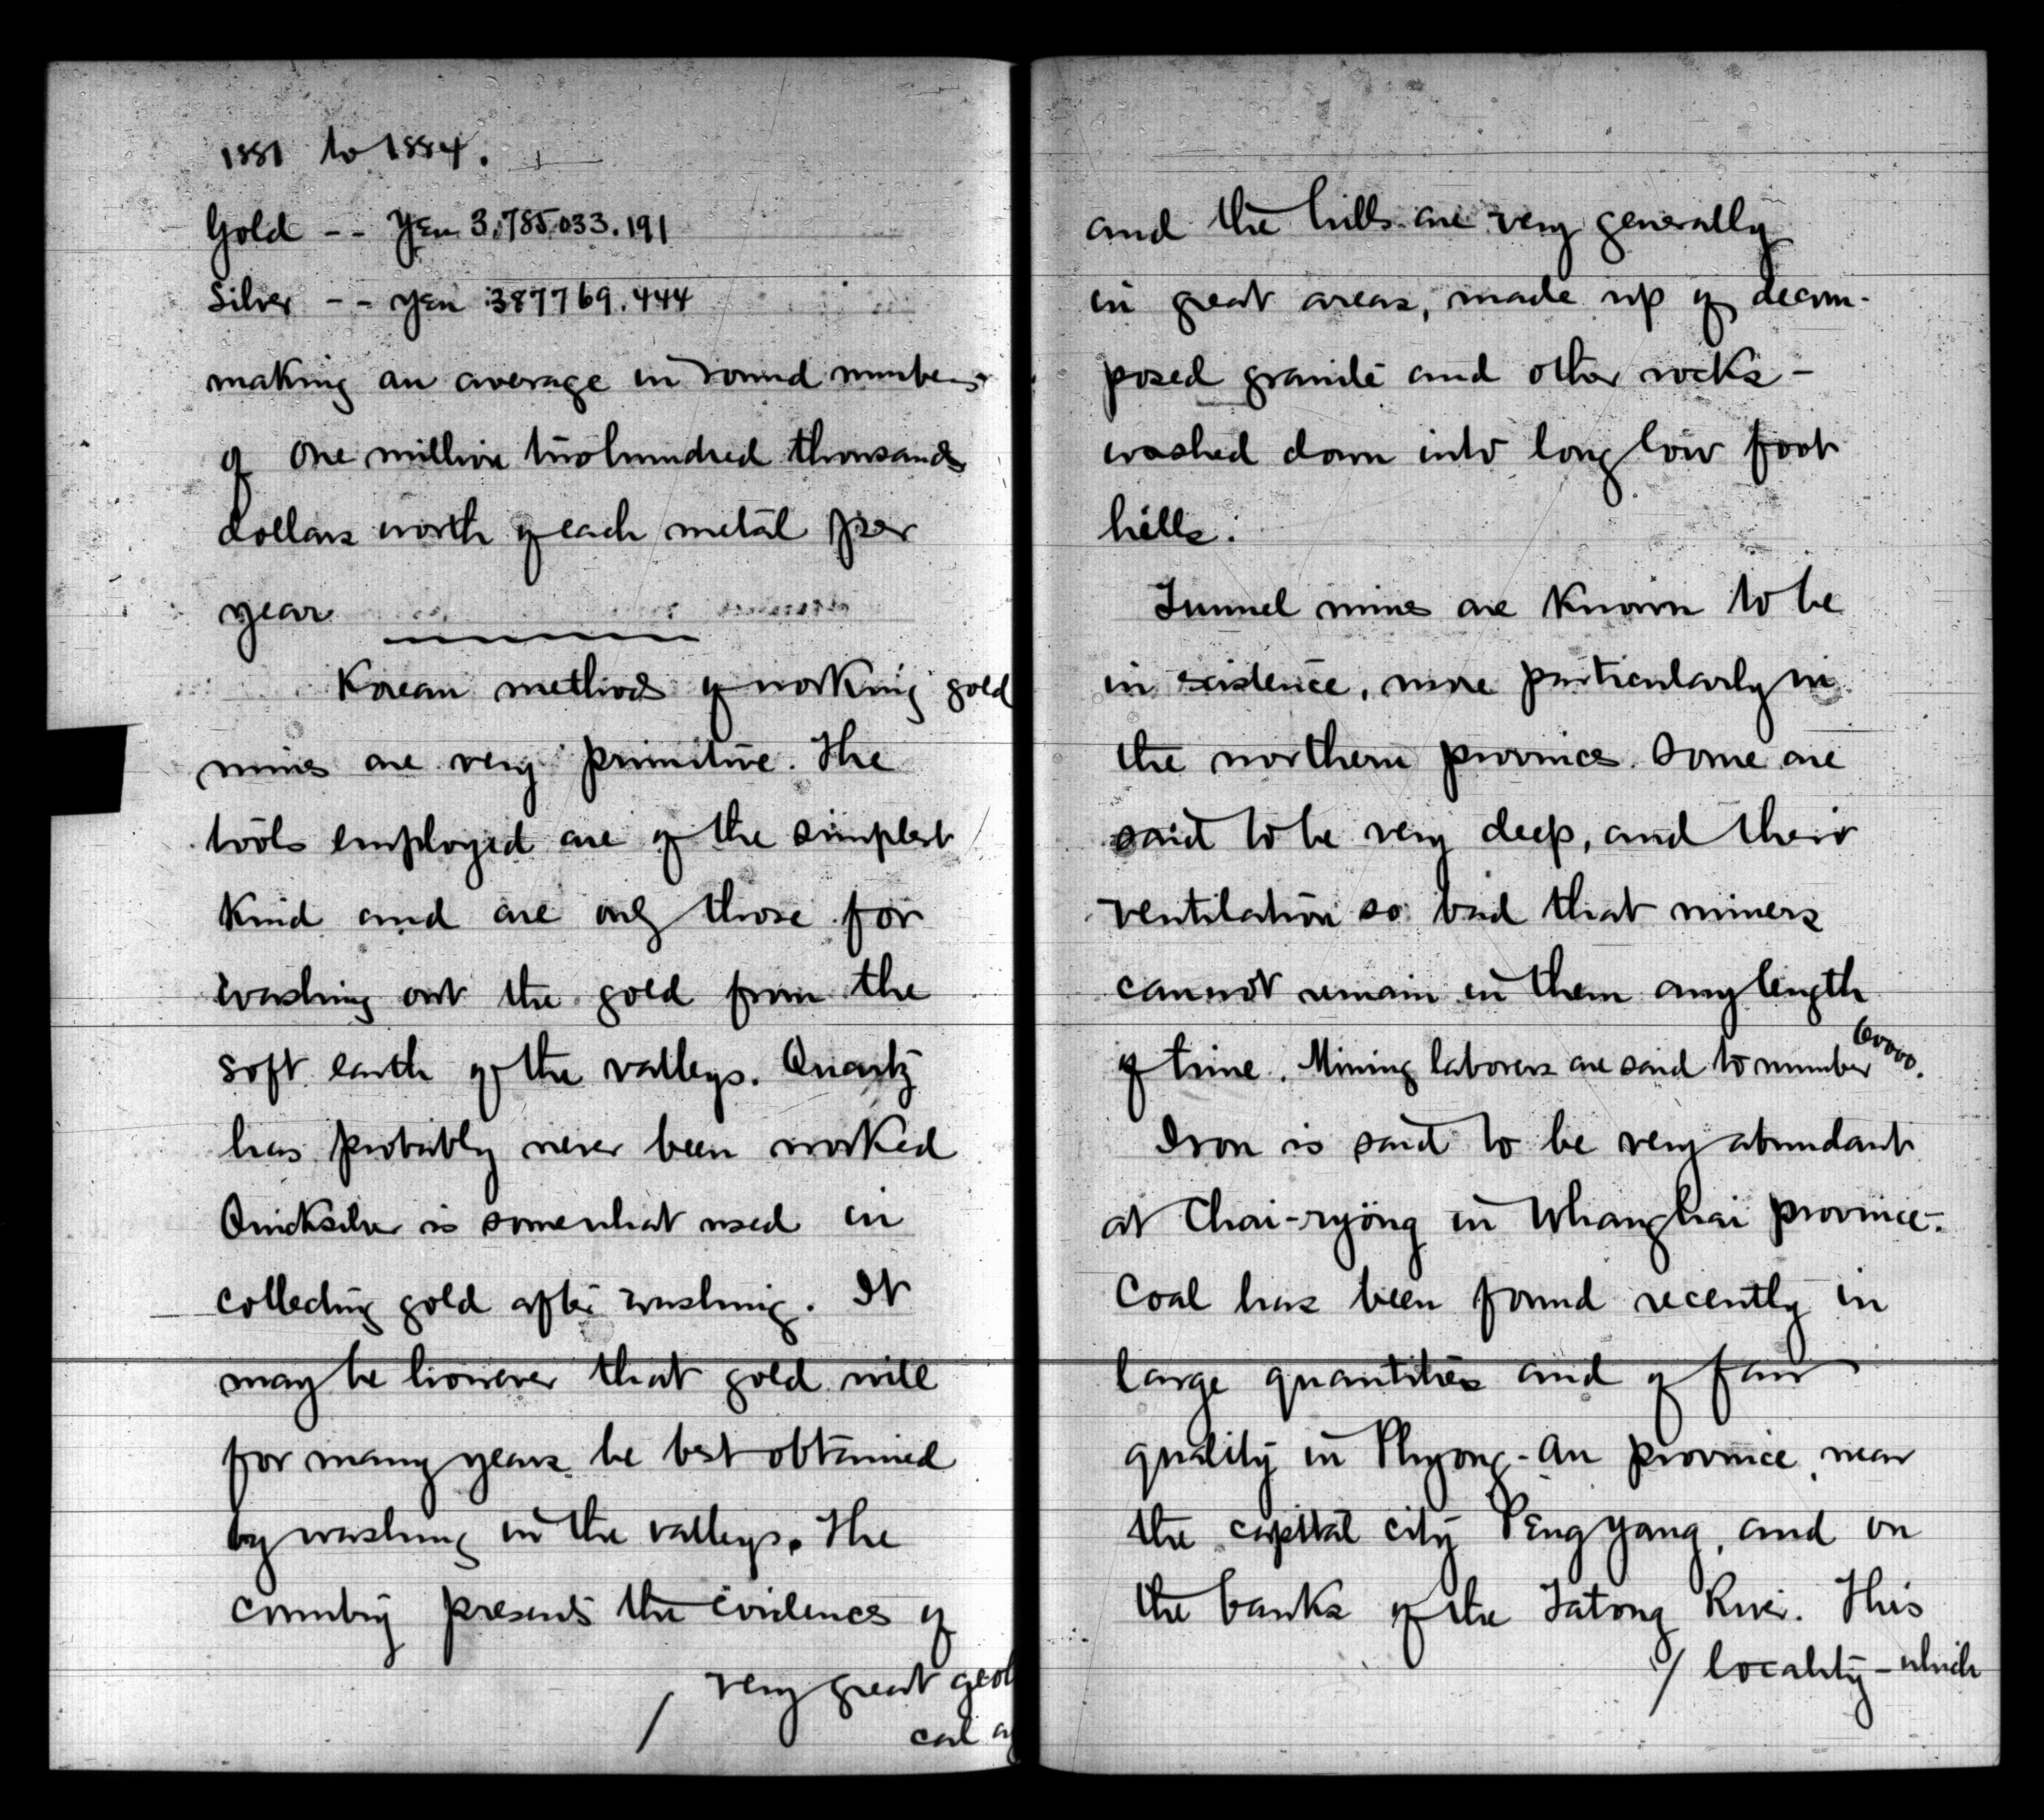 1881 to 1884.
Gold -- Yen 3,785,033.191
Silver -- Yen 387769.444
making an average in round numbers
of one million two hundred thousands
dollars worth of each metal per
year
Korean methods of working gold
mines are very primitive. The
tools employed are of the simplest
kind and are only those for
washing out the gold from the
soft earth of the valleys. Quartz
has probably never been worked
Quicksilver is somewhat used in
collecting gold after washing. It
may be however that gold will
for many years be best obtained
by washing in the valleys. The
country presents the evidences of
/ very great geol
cal ag
and the hills are very generally
in great areas, made up of decom-
posed granite and other rocks -
washed down into long low foot
hills.
Tunnel mines are known to be
in existence, more particularly in
the northern provinces. Some are
said to be very deep, and their
ventilation so bad that miners
cannot remain in them any length
of time. Mining laborers are said to number 60000.
Iron is said to be very abundant
at Chai-ryöng in Whanghai province.
Coal has been found recently in
large quantities and of fair
quality in Phyong-An province, near
the capital city Pengyang, and on
the banks of the Tatong River. This
/ locality - which